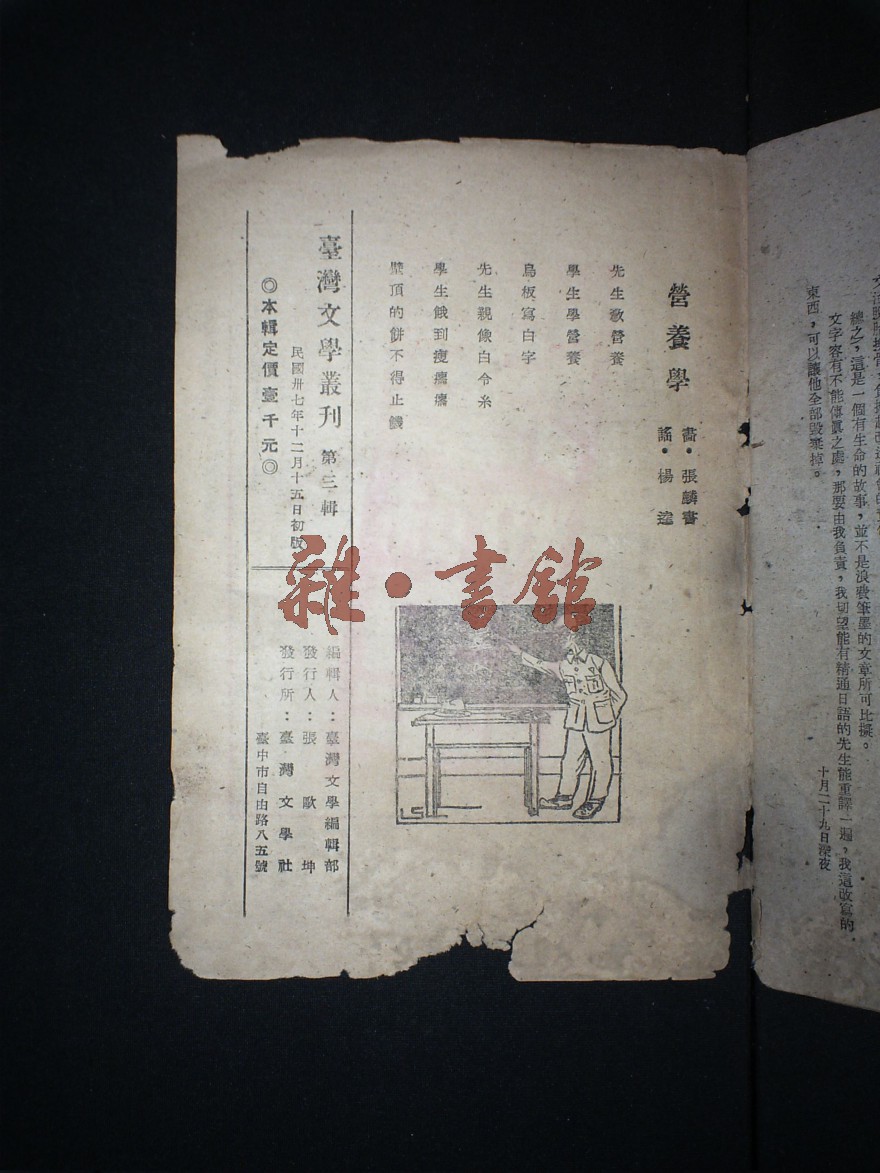 總之，這是一個有生命的故事，並不是浪費筆墨的文章所可比擬。
文字容有不能傳眞之處，那要由我負責，我切望能有精通日語的先生能重譯一遍，我這改寫的
東西，可以讓他全部毀棄掉。
十月二十九日深夜
營養學
畵・張麟書
謠・楊逵
先生敎營養
學生學營養
烏板寫白字
先生親像白令糸
學生餓到瘦
壁頂的餅不得止饑
臺灣文學叢刊 第三輯
民國卅七年十二月十五日初版
◎本輯定價壹千元◎
編輯人：臺灣文學編輯部
發行人：張歐坤
發行所：臺灣文學社
臺中市自由路八五號
雜・書館